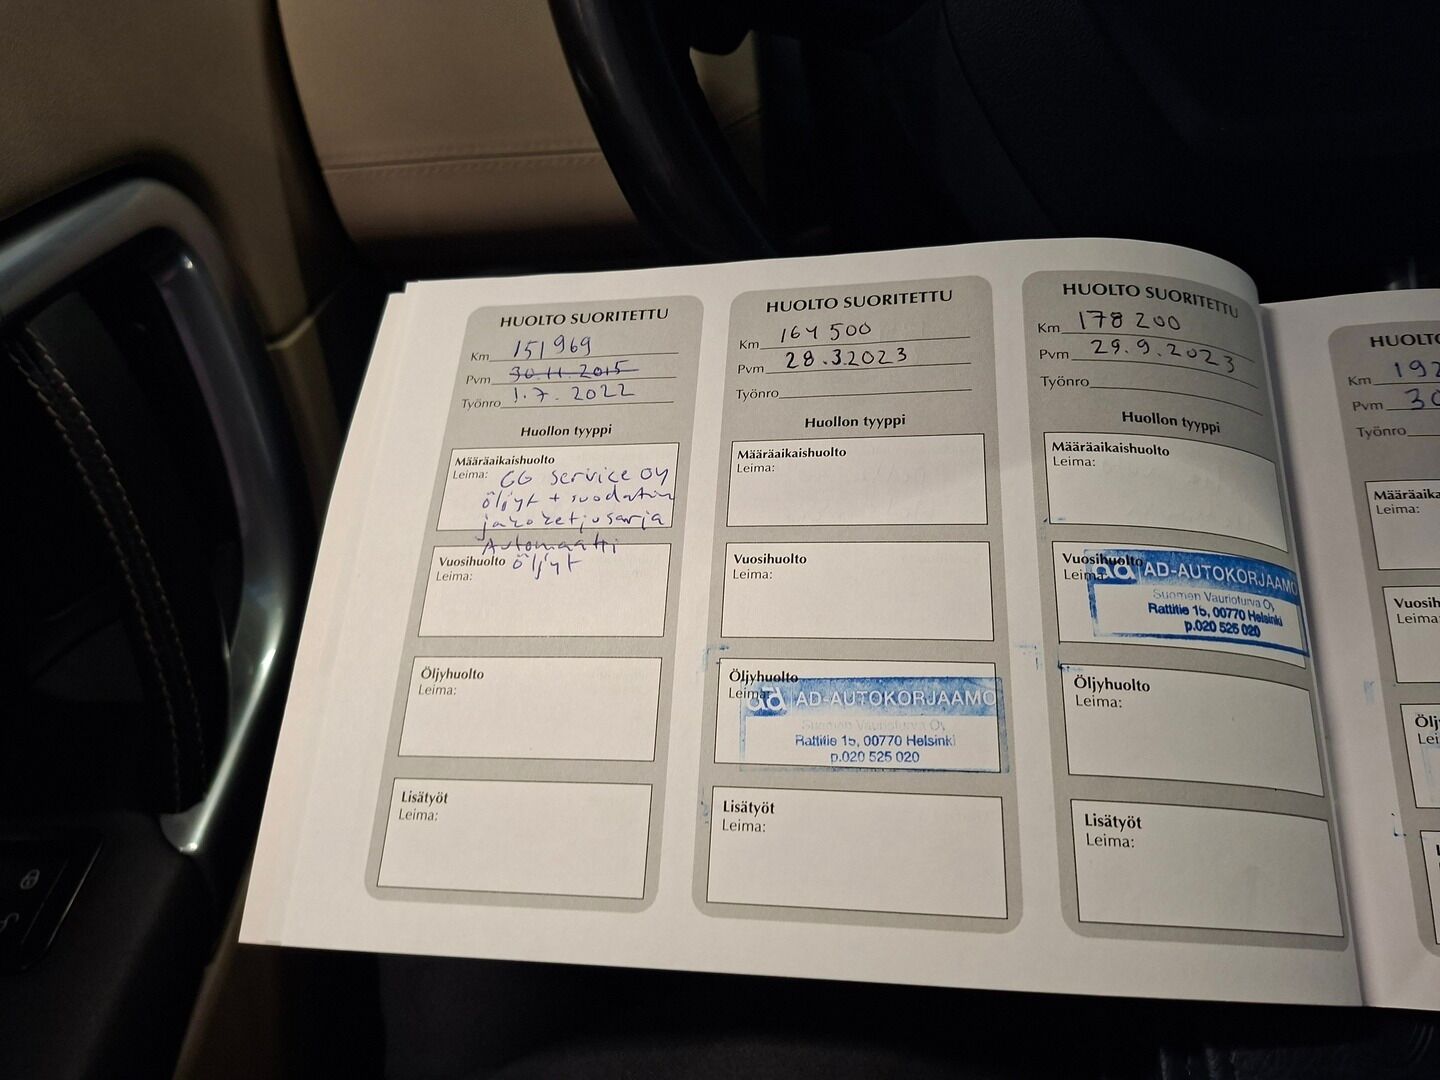 HUOLTO SUORITETTU
Km 151969
Pvm 30.11.2015
Työnro 1.7.2022
Huollon tyyppi
Määräaikaishuolto
Leima: GG Service Oy
öljyt + suodatin
jakoketjusarja
Automaatti
Vuosihuolto öljyt
Leima:
Öljyhuolto
Leima:
Lisätyöt
Leima:
HUOLTO SUORITETTU
Km 164 500
Pvm 28.3.2023
Työnro
Huollon tyyppi
Määräaikaishuolto
Leima:
Vuosihuolto
Leima:
Öljyhuolto
Leima:
ad AD-AUTOKORJAAMO
Suomen Vaurioturva Oy
Rattitie 15, 00770 Helsinki
p.020 525 020
Lisätyöt
Leima:
HUOLTO SUORITETTU
Km 178 200
Pvm 29.9.2023
Työnro
Huollon tyyppi
Määräaikaishuolto
Leima:
Vuosihuolto
Leima:
ad AD-AUTOKORJAAMO
Suomen Vaurioturva Oy
Rattitie 15, 00770 Helsinki
p.020 525 020
Öljyhuolto
Leima:
Lisätyöt
Leima:
HUOLTO
Km 192
Pvm 30
Työnro
Määräaika
Leima:
Vuosih
Leima:
Öljy
Lei